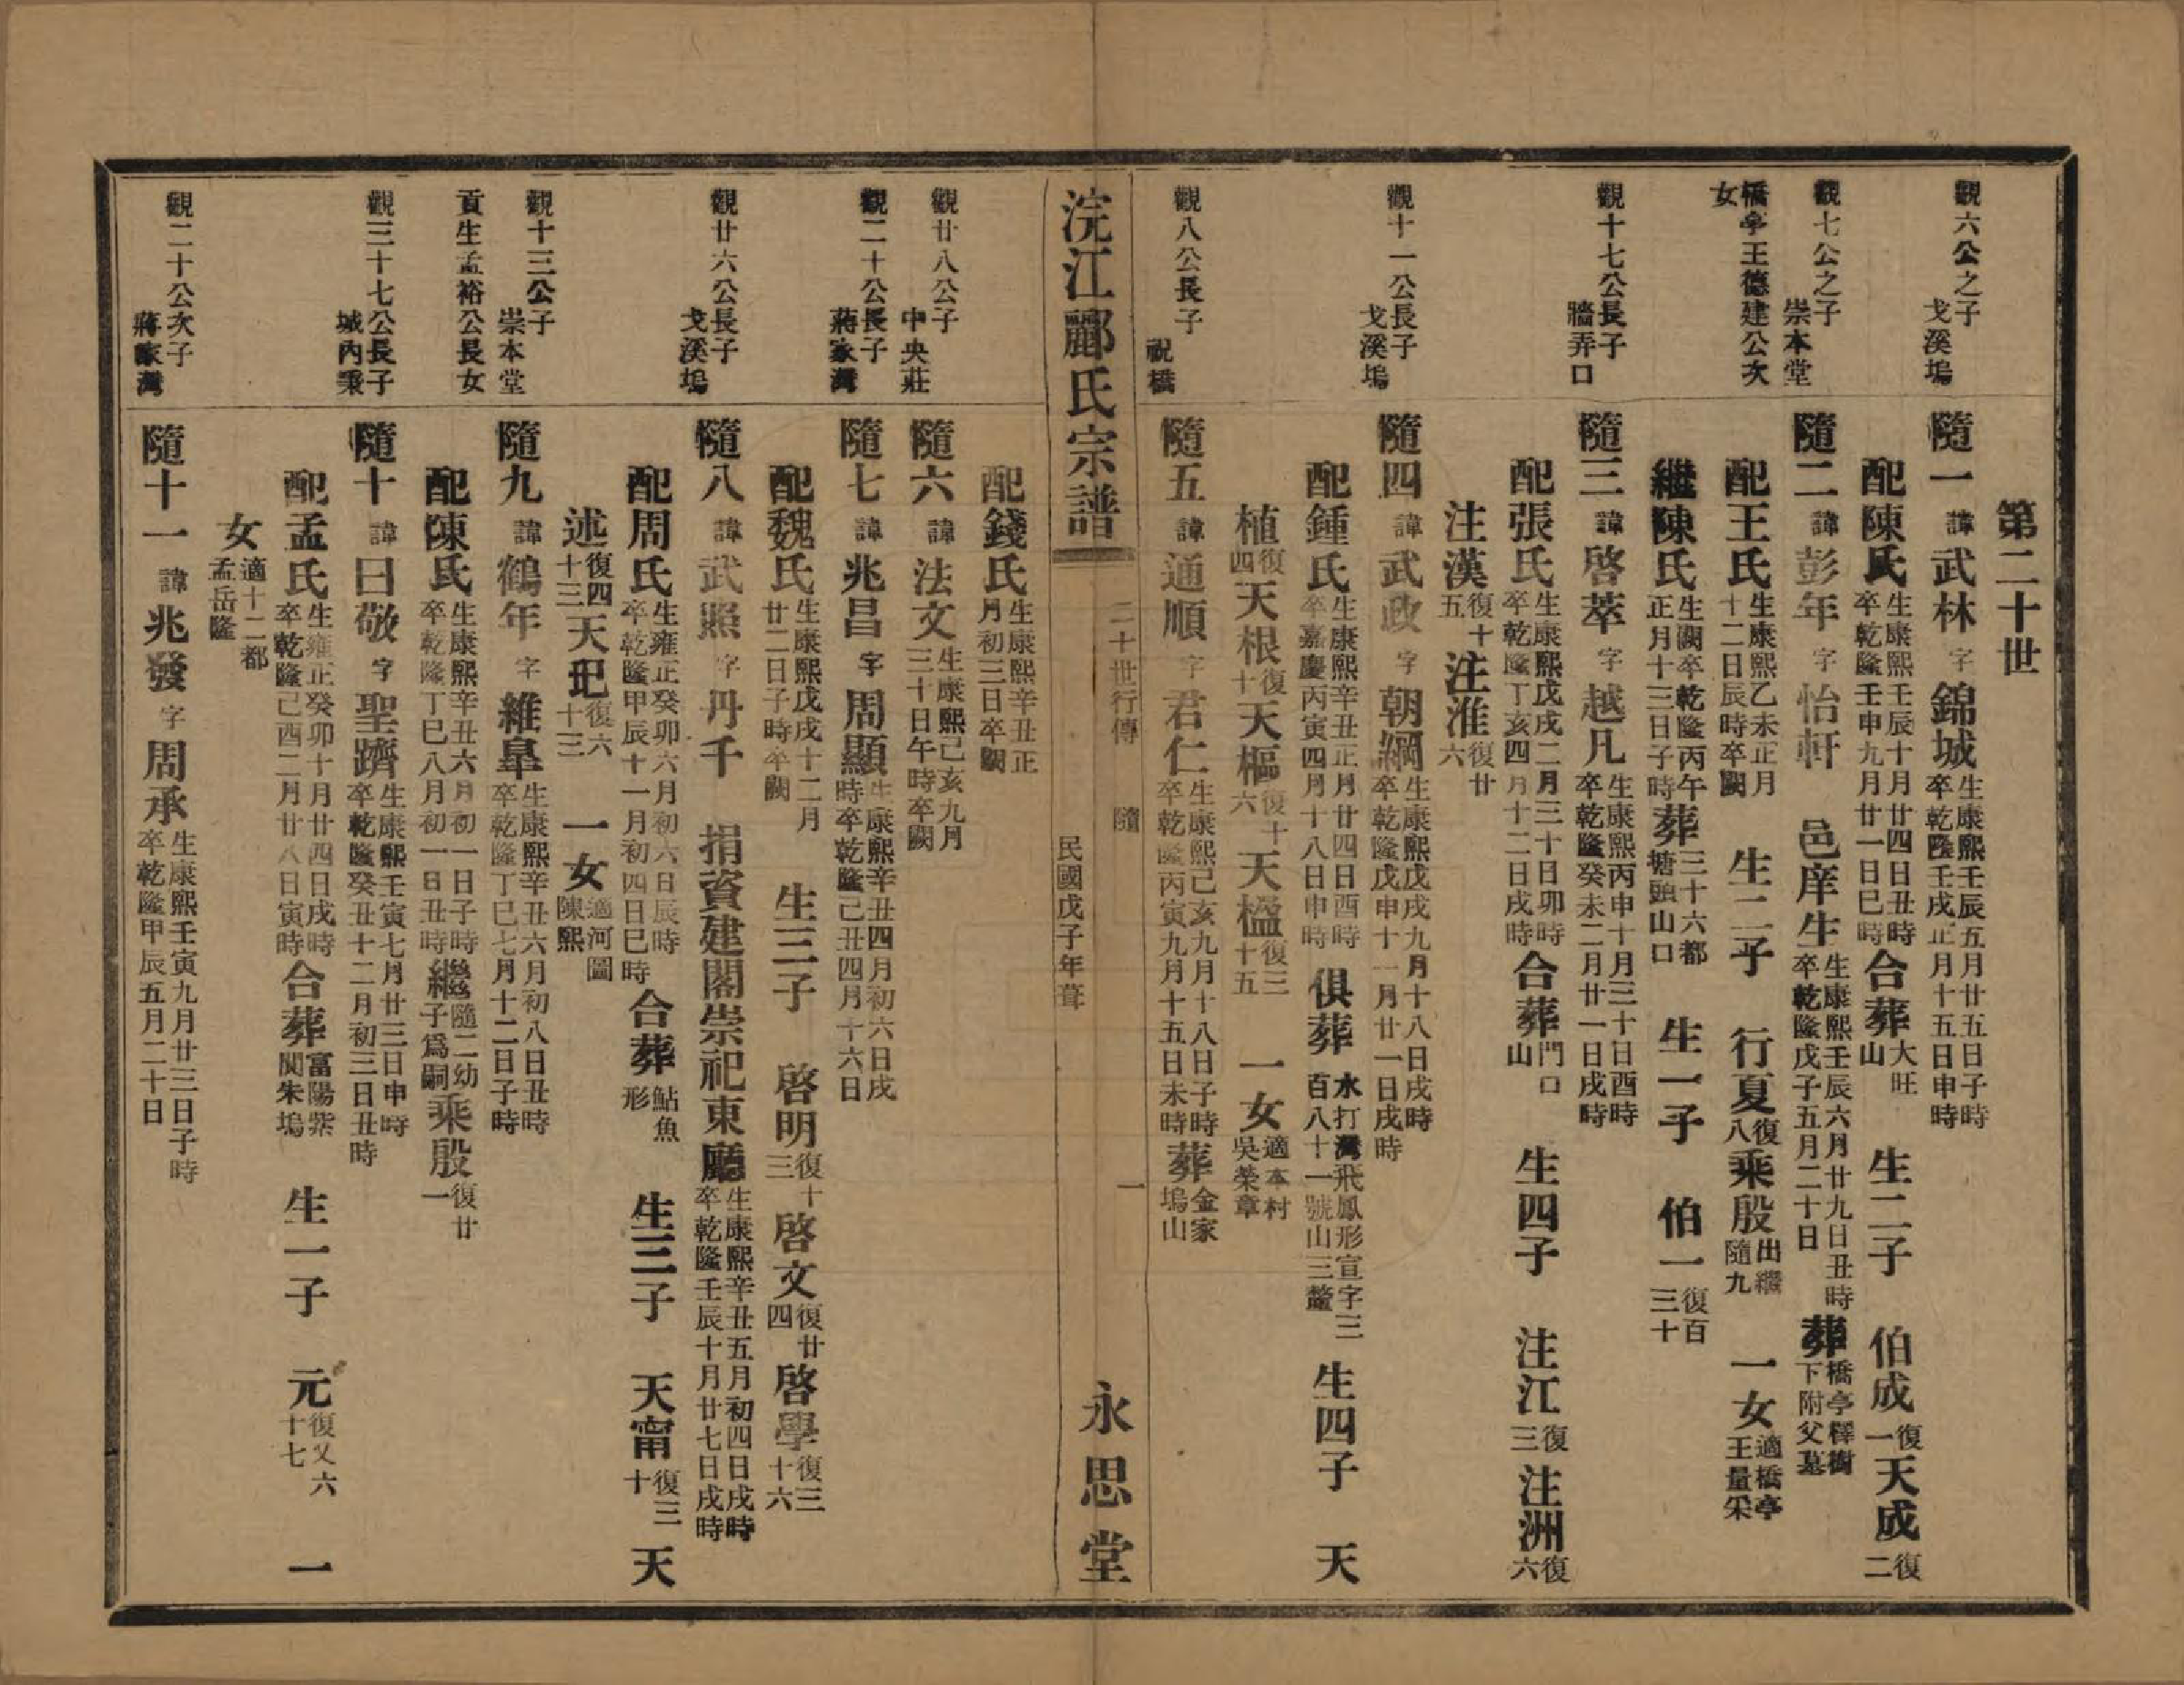 第二十世
觀六公之子 戈溪塢
隨一 諱武林 字錦城 生康熙壬辰五月廿五日子時 卒乾隆壬戌正月十五日申時
配陳氏 生康熙壬辰十月廿四日丑時 卒乾隆壬申九月廿一日巳時 合葬大旺山 生二子 伯成復一 天成復二
觀七公之子 崇本堂
隨二 諱彭年 字怡軒 邑庠生 生康熙壬辰六月廿九日丑時 卒乾隆戊子五月二十日 葬橋亭釋樹下附父墓
橋亭王德建公次女
配王氏 生康熙乙未正月十二日辰時卒闕 生二子 行夏復八 乘殷出繼隨九 一女適橋亭王量采
繼陳氏 生闕卒乾隆丙午正月十三日子時 葬三十六都塘頭山口 生一子 伯一復百三十
觀十七公長子 牆弄口
隨三 諱啓萃 字越凡 生康熙丙申十月三十日酉時 卒乾隆癸未二月廿一日戌時
配張氏 生康熙戊戌二月三十日卯時 卒乾隆丁亥四月十二日戌時 合葬門口山 生四子 注江復三 注洲復六
注漢復十五 注淮復廿六
觀十一公長子 戈溪塢
隨四 諱武政 字朝綱 生康熙戊戌九月十八日戌時 卒乾隆戊申十一月廿一日戌時
配鍾氏 生康熙辛丑正月廿四日酉時 卒嘉慶丙寅四月十八日申時 俱葬水打灣飛鳳形宣字三百八十一號山三釐 生四子 天
植復四 天根復十 天樞復十六 天楹復三十五 一女適本村吳榮章
觀八公長子 祝橋
隨五 諱通順 字君仁 生康熙己亥九月十八日子時 卒乾隆丙寅九月十五日未時 葬金家塢山
浣江酈氏宗譜 二十世行傳 隨 一 民國戊子年葺 永思堂
配錢氏 生康熙辛丑正月初三日卒闕
觀廿八公子 中央莊
隨六 諱法文 生康熙己亥九月三十日午時卒闕
觀二十公長子 蔣家灣
隨七 諱兆昌 字周顯 生康熙辛丑四月初六日戌時卒乾隆己丑四月十六日
配魏氏 生康熙戊戌十二月廿二日子時卒闕 生三子 啓明復十三 啓文復廿四 啓學復三十六
觀廿六公長子 戈溪塢
隨八 諱武照 字丹千 捐資建閣崇祀東廳 生康熙辛丑五月初四日戌時 卒乾隆壬辰十月廿七日戌時
配周氏 生雍正癸卯六月初六日辰時 卒乾隆甲辰十一月初四日巳時 合葬鮎魚形 生三子 天甯復三十 天
述復四十三 天玘復六十三 一女適河圖陳熙
觀十三公子 崇本堂
隨九 諱鶴年 字維皐 生康熙辛丑六月初八日丑時 卒乾隆丁巳七月十二日子時
貢生孟裕公長女
配陳氏 生康熙辛丑六月初一日子時 卒乾隆丁巳八月初一日丑時 繼隨二幼子爲嗣 乘殷復廿一
觀三十七公長子 城內秉
隨十 諱日敬 字聖躋 生康熙壬寅七月廿三日申時 卒乾隆癸丑十二月初三日丑時
配孟氏 生雍正癸卯十月廿四日戌時 卒乾隆己酉二月廿八日寅時 合葬富陽紫閬朱塢 生一子 元復又六十七 一
女適十二都孟岳隆
觀二十公次子 蔣家灣
隨十一 諱兆發 字周承 生康熙壬寅九月廿三日子時 卒乾隆甲辰五月二十日